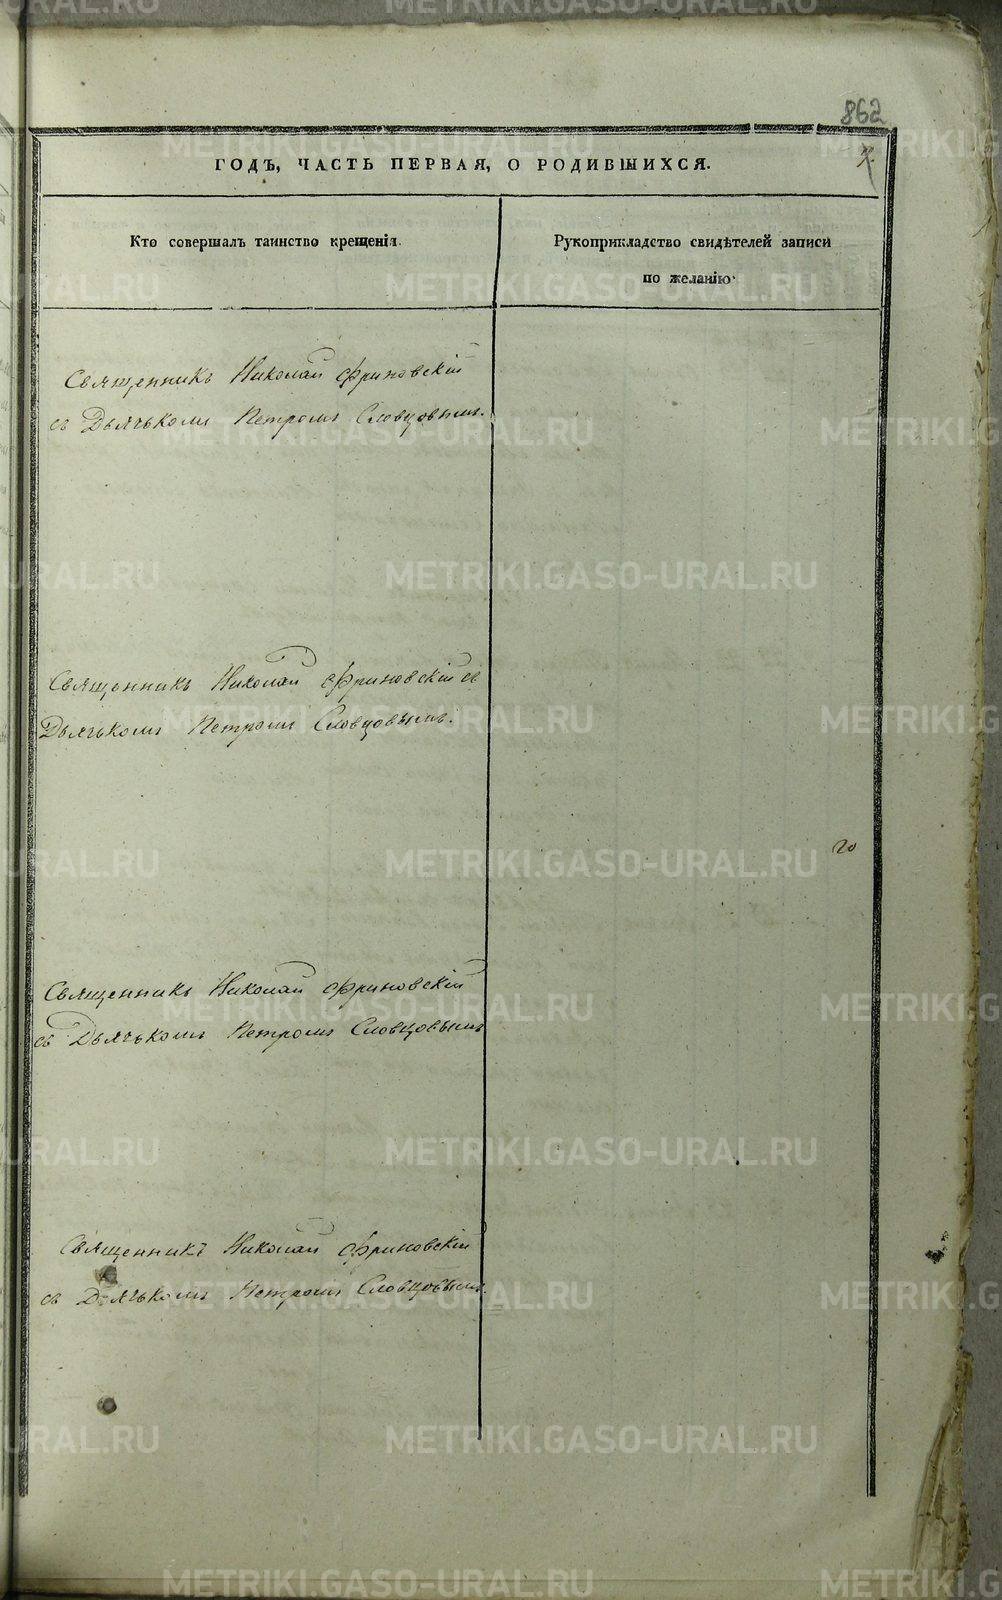 862
ГОДЪ, ЧАСТЬ ПЕРВАЯ, О РОДИВШИХСЯ.
Кто совершалъ таинство крещенія.
Рукоприкладство свидѣтелей записи
по желанію.
Священникъ Николай Фриновскій
съ Дьячькомъ Петромъ Словцовымъ.
Священникъ Николай Фриновскій съ
Дьячькомъ Петромъ Словцовымъ.
Священникъ Николай Фриновскій
съ Дьячькомъ Петромъ Словцовымъ
Священникъ Николай Фриновскій
съ Дьячькомъ Петромъ Словцовымъ.
METRIKI.GASO-URAL.RU